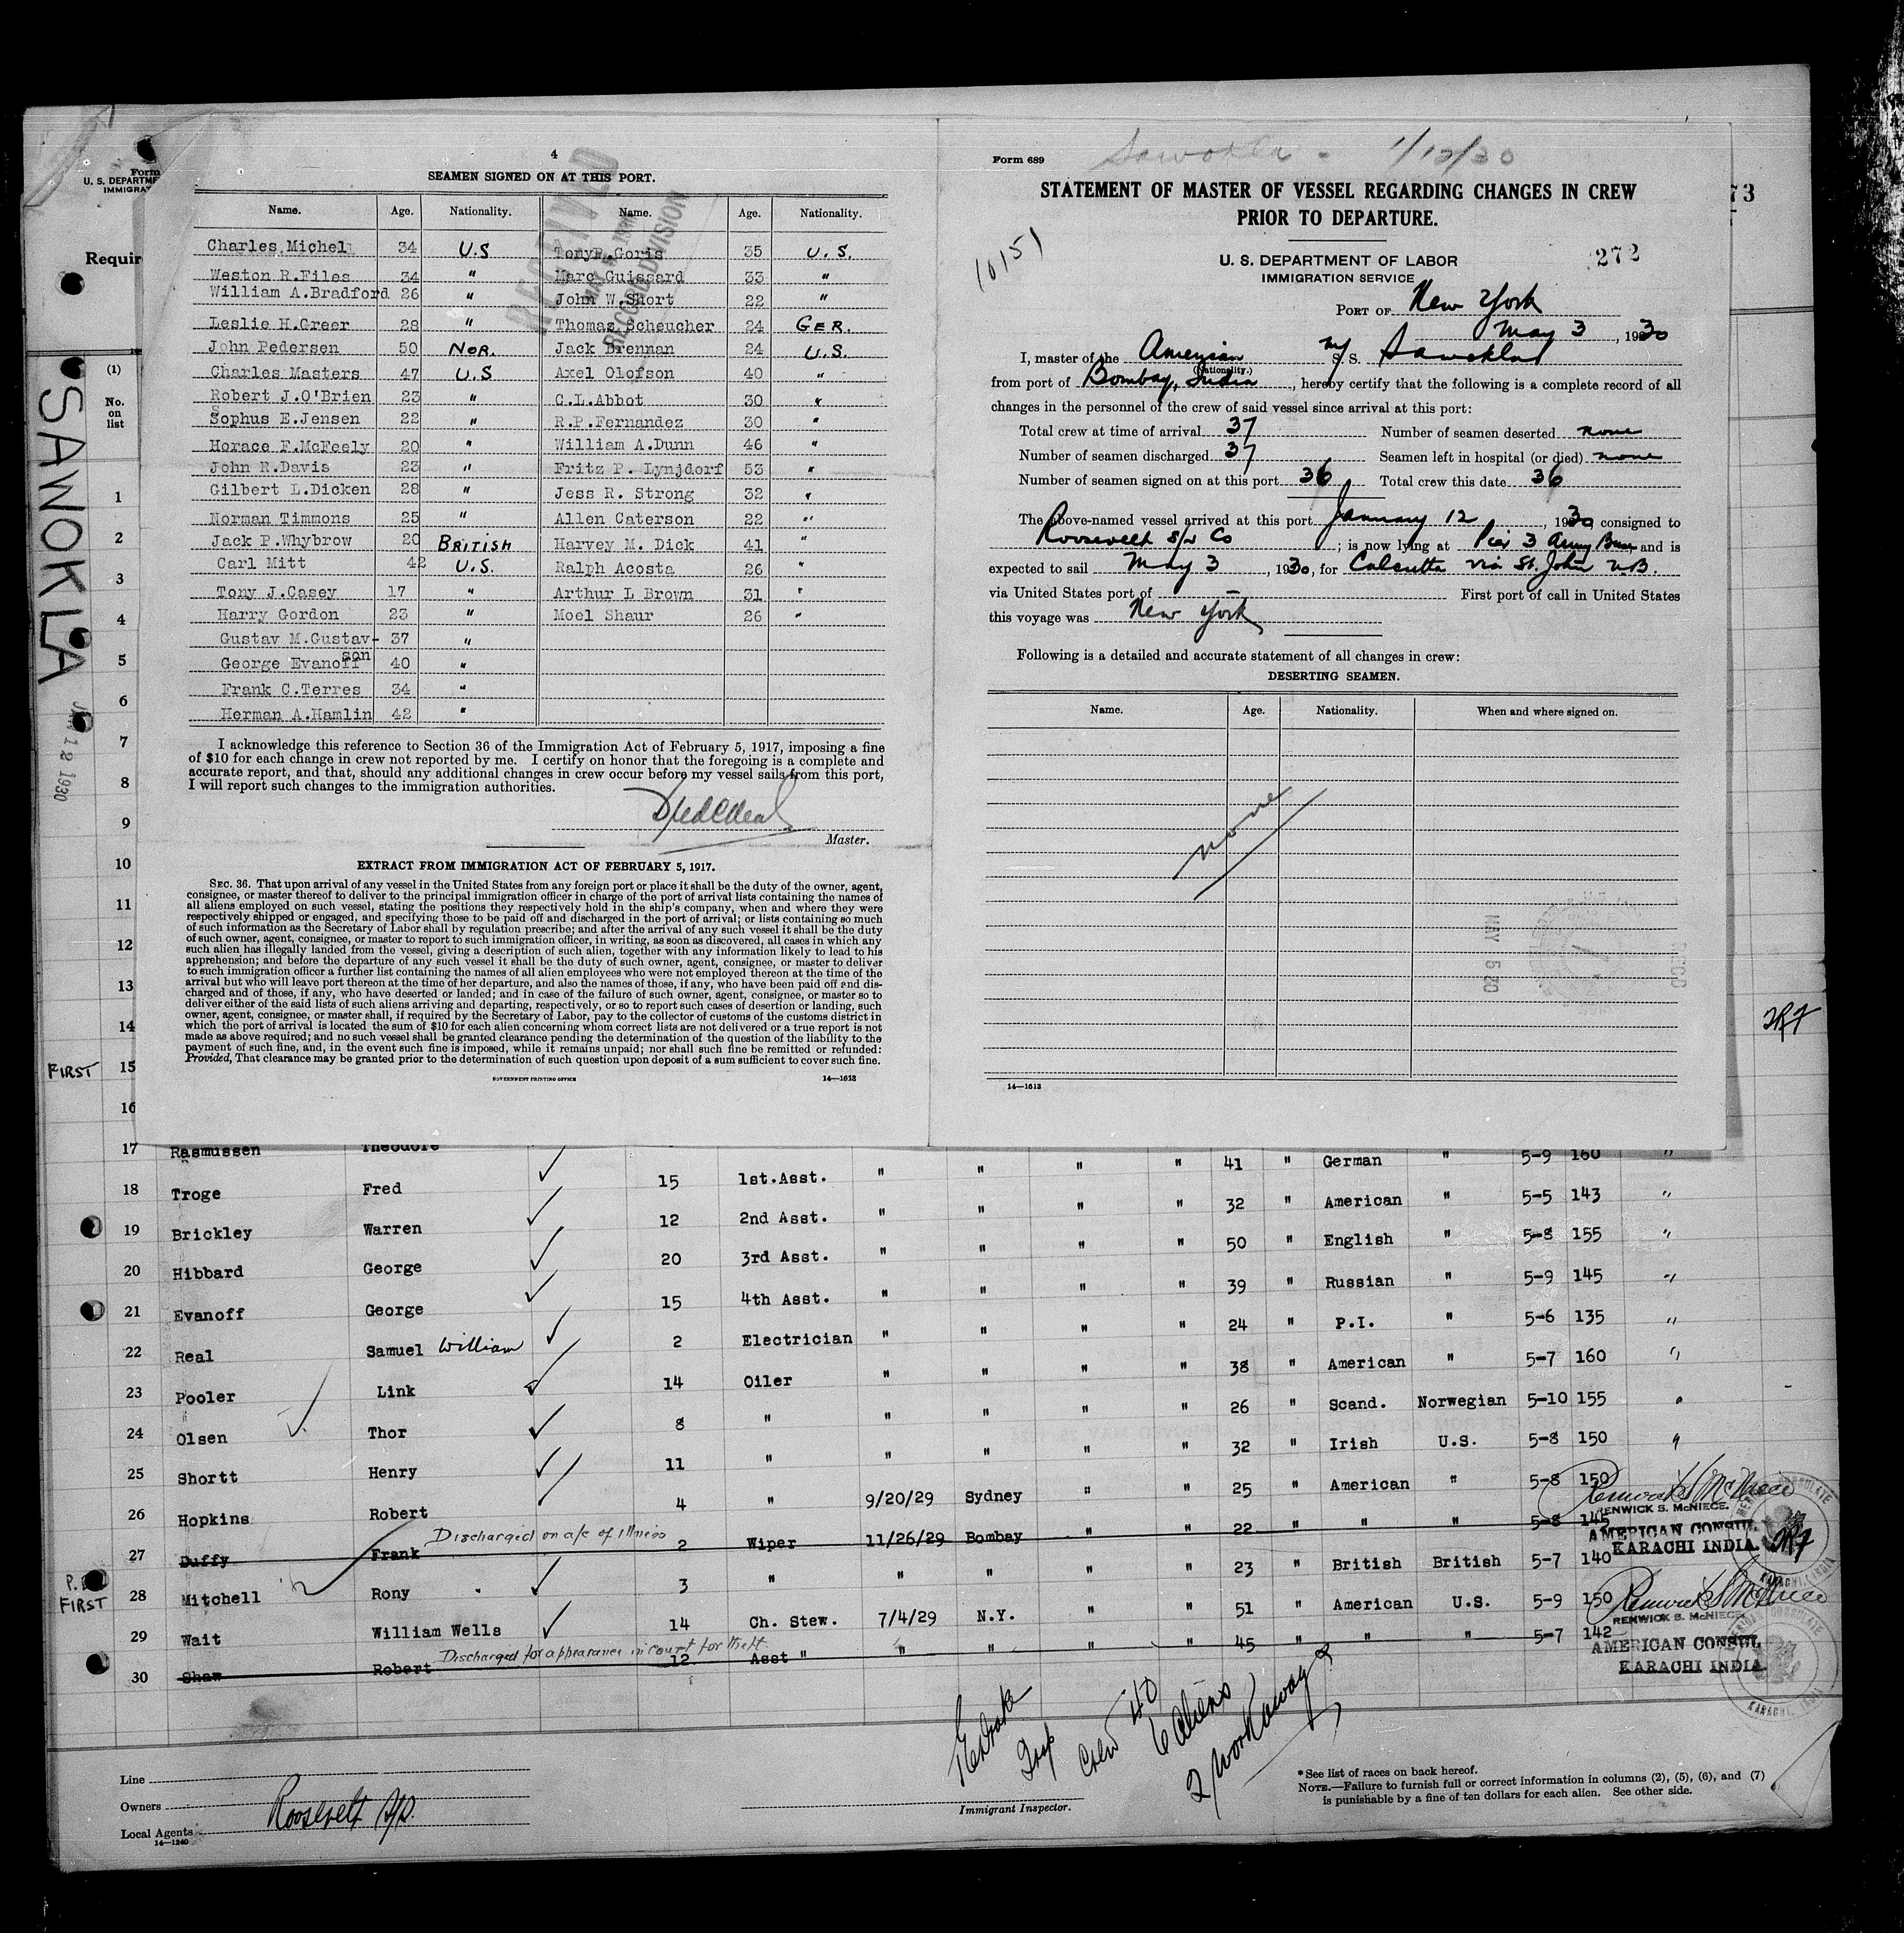 4
SEAMEN SIGNED ON AT THIS PORT.
Name. Age. Nationality. Name. Age. Nationality.
Charles Michel 34 U.S Tony P. Goris 35 U.S.
Weston R.Files 34 " Marc Guissard 33 "
William A.Bradford 26 " John W.Short 22 "
Leslie H.Greer 28 " Thomas Scheucher 24 GER.
John Pedersen 50 NOR. Jack Brennan 24 U.S.
Charles Masters 47 U.S Axel Olofson 40 "
Robert J.O'Brien 23 " C.L.Abbot 30 "
Sophus E.Jensen 22 " R.P.Fernandez 30 "
Horace F.McFeely 20 " William A.Dunn 46 "
John R.Davis 23 " Fritz P. Lynjdorf 53 "
Gilbert L.Dicken 28 " Jess R. Strong 32 "
Norman Timmons 25 " Allen Caterson 22 "
Jack P.Whybrow 20 BRITISH Harvey M. Dick 41 "
Carl Mitt 42 U.S. Ralph Acosta 26 "
Tony J.Casey 17 " Arthur L Brown 31 "
Harry Gordon 23 " Moel Shaur 26 "
Gustav M.Gustav-son 37 "
George Evanoff 40 "
Frank C.Terres 34 "
Herman A.Hamlin 42 "
RECEIVED
RECORD DIVISION
I acknowledge this reference to Section 36 of the Immigration Act of February 5, 1917, imposing a fine
of $10 for each change in crew not reported by me. I certify on honor that the foregoing is a complete and
accurate report, and that, should any additional changes in crew occur before my vessel sails from this port,
I will report such changes to the immigration authorities.
Master.
EXTRACT FROM IMMIGRATION ACT OF FEBRUARY 5, 1917.
SEC. 36. That upon arrival of any vessel in the United States from any foreign port or place it shall be the duty of the owner, agent,
consignee, or master thereof to deliver to the principal immigration officer in charge of the port of arrival lists containing the names of
all aliens employed on such vessel, stating the positions they respectively hold in the ship's company, when and where they were
respectively shipped or engaged, and specifying those to be paid off and discharged in the port of arrival; or lists containing so much
of such information as the Secretary of Labor shall by regulation prescribe; and after the arrival of any such vessel it shall be the duty
of such owner, agent, consignee, or master to report to such immigration officer, in writing, as soon as discovered, all cases in which any
such alien has illegally landed from the vessel, giving a description of such alien, together with any information likely to lead to his
apprehension; and before the departure of any such vessel it shall be the duty of such owner, agent, consignee, or master to deliver
to such immigration officer a further list containing the names of all alien employees who were not employed thereon at the time of the
arrival but who will leave port thereon at the time of her departure, and also the names of those, if any, who have been paid off and dis-
charged and of those, if any, who have deserted or landed; and in case of the failure of such owner, agent, consignee, or master so to
deliver either of the said lists of such aliens arriving and departing, respectively, or so to report such cases of desertion or landing, such
owner, agent, consignee, or master shall, if required by the Secretary of Labor, pay to the collector of customs of the customs district in
which the port of arrival is located the sum of $10 for each alien concerning whom correct lists are not delivered or a true report is not
made as above required; and no such vessel shall be granted clearance pending the determination of the question of the liability to the
payment of such fine, and, in the event such fine is imposed, while it remains unpaid; nor shall such fine be remitted or refunded:
Provided, That clearance may be granted prior to the determination of such question upon deposit of a sum sufficient to cover such fine.
GOVERNMENT PRINTING OFFICE 14—1613
Form 689
Sawokla - 1/12/30
STATEMENT OF MASTER OF VESSEL REGARDING CHANGES IN CREW
PRIOR TO DEPARTURE.
10151
U. S. DEPARTMENT OF LABOR
IMMIGRATION SERVICE
272
PORT OF New York
May 3, 1930
I, master of the American M S. S. Sawokla
(Nationality.)
from port of Bombay, India, hereby certify that the following is a complete record of all
changes in the personnel of the crew of said vessel since arrival at this port:
Total crew at time of arrival 37 Number of seamen deserted none
Number of seamen discharged 37 Seamen left in hospital (or died) none
Number of seamen signed on at this port 36 Total crew this date 36
The above-named vessel arrived at this port January 12, 1930, consigned to
Roosevelt S/S Co; is now lying at Pier 3 Army Base and is
expected to sail May 3, 1930, for Calcutta via St. John N.B.
via United States port of — First port of call in United States
this voyage was New York
Following is a detailed and accurate statement of all changes in crew:
DESERTING SEAMEN.
Name. Age. Nationality. When and where signed on.
none
MAY 5 30
REC'D
14—1613
Form
U. S. DEPARTME
IMMIGRA
Requir
73
SAWOKLA
JAN 12 1930
(1)
No.
on
list
1
2
3
4
5
6
7
8
9
10
11
12
13
14
FIRST 15
16
17 Rasmussen Theodore
18 Troge Fred 15 1st.Asst. " " " " 41 " German " 5-9 160 "
19 Brickley Warren 12 2nd Asst. " " " " 32 " American " 5-5 143 "
20 Hibbard George 20 3rd Asst. " " " " 50 " English " 5-8 155 "
21 Evanoff George 15 4th Asst. " " " " 39 " Russian " 5-9 145 "
22 Real Samuel William 2 Electrician " " " " 24 " P.I. " 5-6 135 "
23 Pooler Link 14 Oiler " " " " 38 " American " 5-7 160 "
24 Olsen Thor 8 " " " " " 26 " Scand. Norwegian 5-10 155 "
25 Shortt Henry 11 " " " " " 32 " Irish U.S. 5-8 150 "
26 Hopkins Robert 4 " 9/20/29 Sydney " " 25 " American " 5-8 150
27 Duffy Frank Discharged on a/c of illness 2 Wiper 11/26/29 Bombay " " 22 " " " 5-8 145
P. FIRST 28 Mitchell Rony 3 " " " " " 23 " British British 5-7 140
29 Wait William Wells 14 Ch. Stew. 7/4/29 N.Y. " " 51 " American U.S. 5-9 150
30 Shaw Robert Discharged for appearance in court for theft. 12 Asst " " " " " 45 " " " 5-7 142
RENWICK S. McNIECE.
AMERICAN CONSUL
KARACHI INDIA.
RENWICK S. McNIECE.
AMERICAN CONSUL
KARACHI INDIA.
Crew 40
6 Aliens
2 workaways
Line
Owners
Roosevelt S/S.
Local Agents
14—1240
Immigrant Inspector.
* See list of races on back hereof.
NOTE.—Failure to furnish full or correct information in columns (2), (5), (6), and (7)
is punishable by a fine of ten dollars for each alien. See other side.